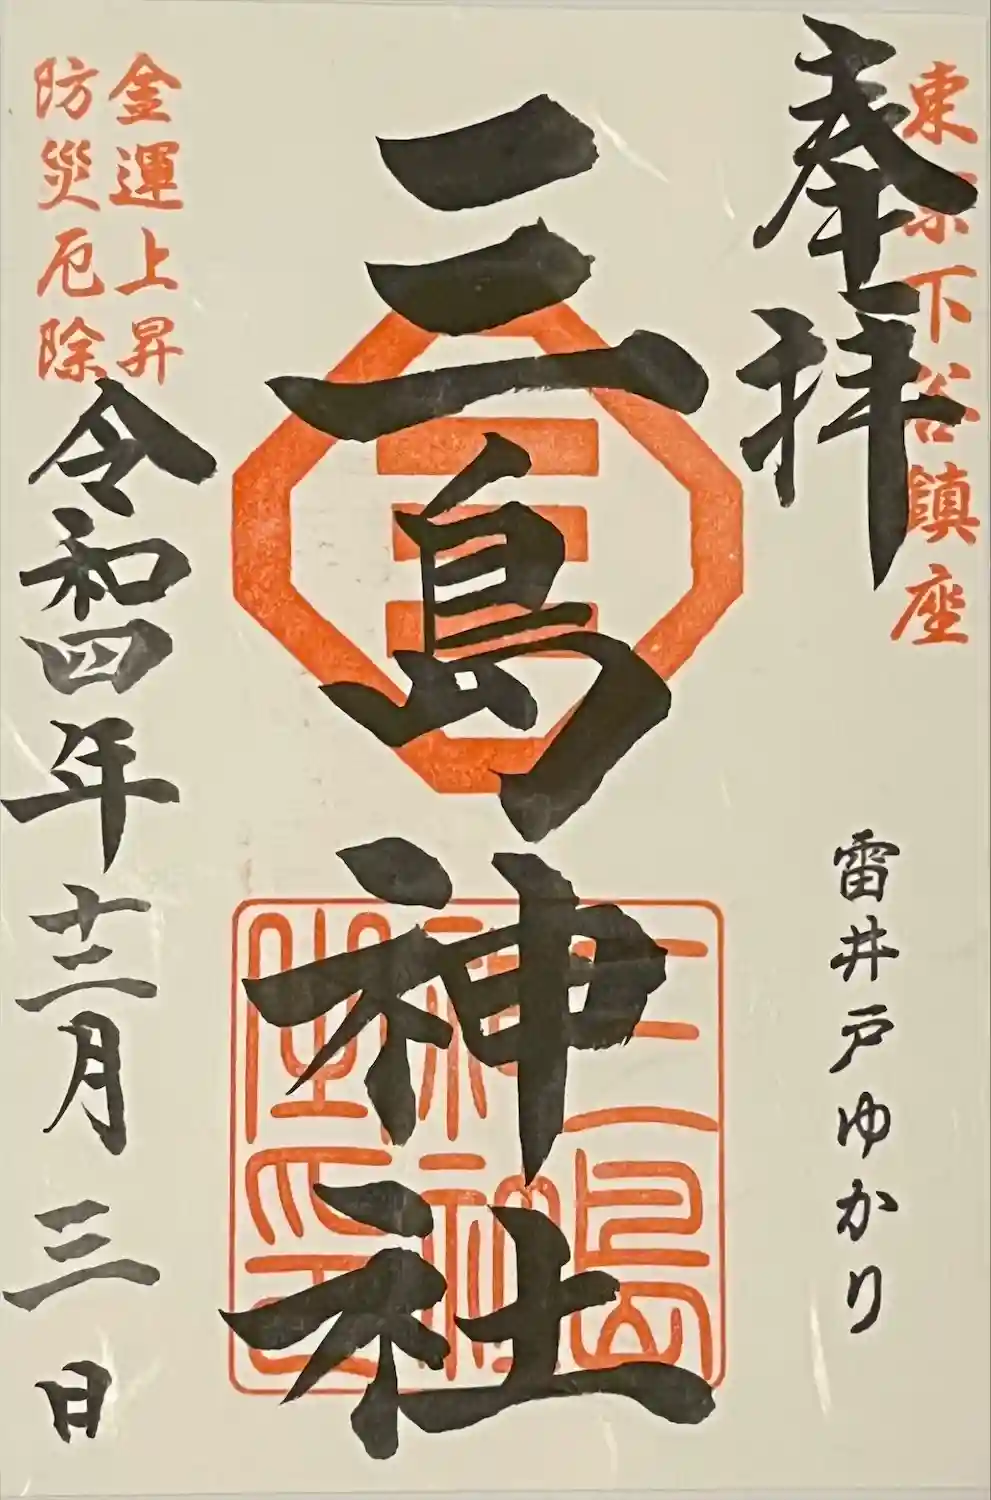 東京下谷鎮座
奉拝
雷井戸ゆかり
三島神社
三
三島
神社
之印
金運上昇
防災厄除
令和四年十二月三日